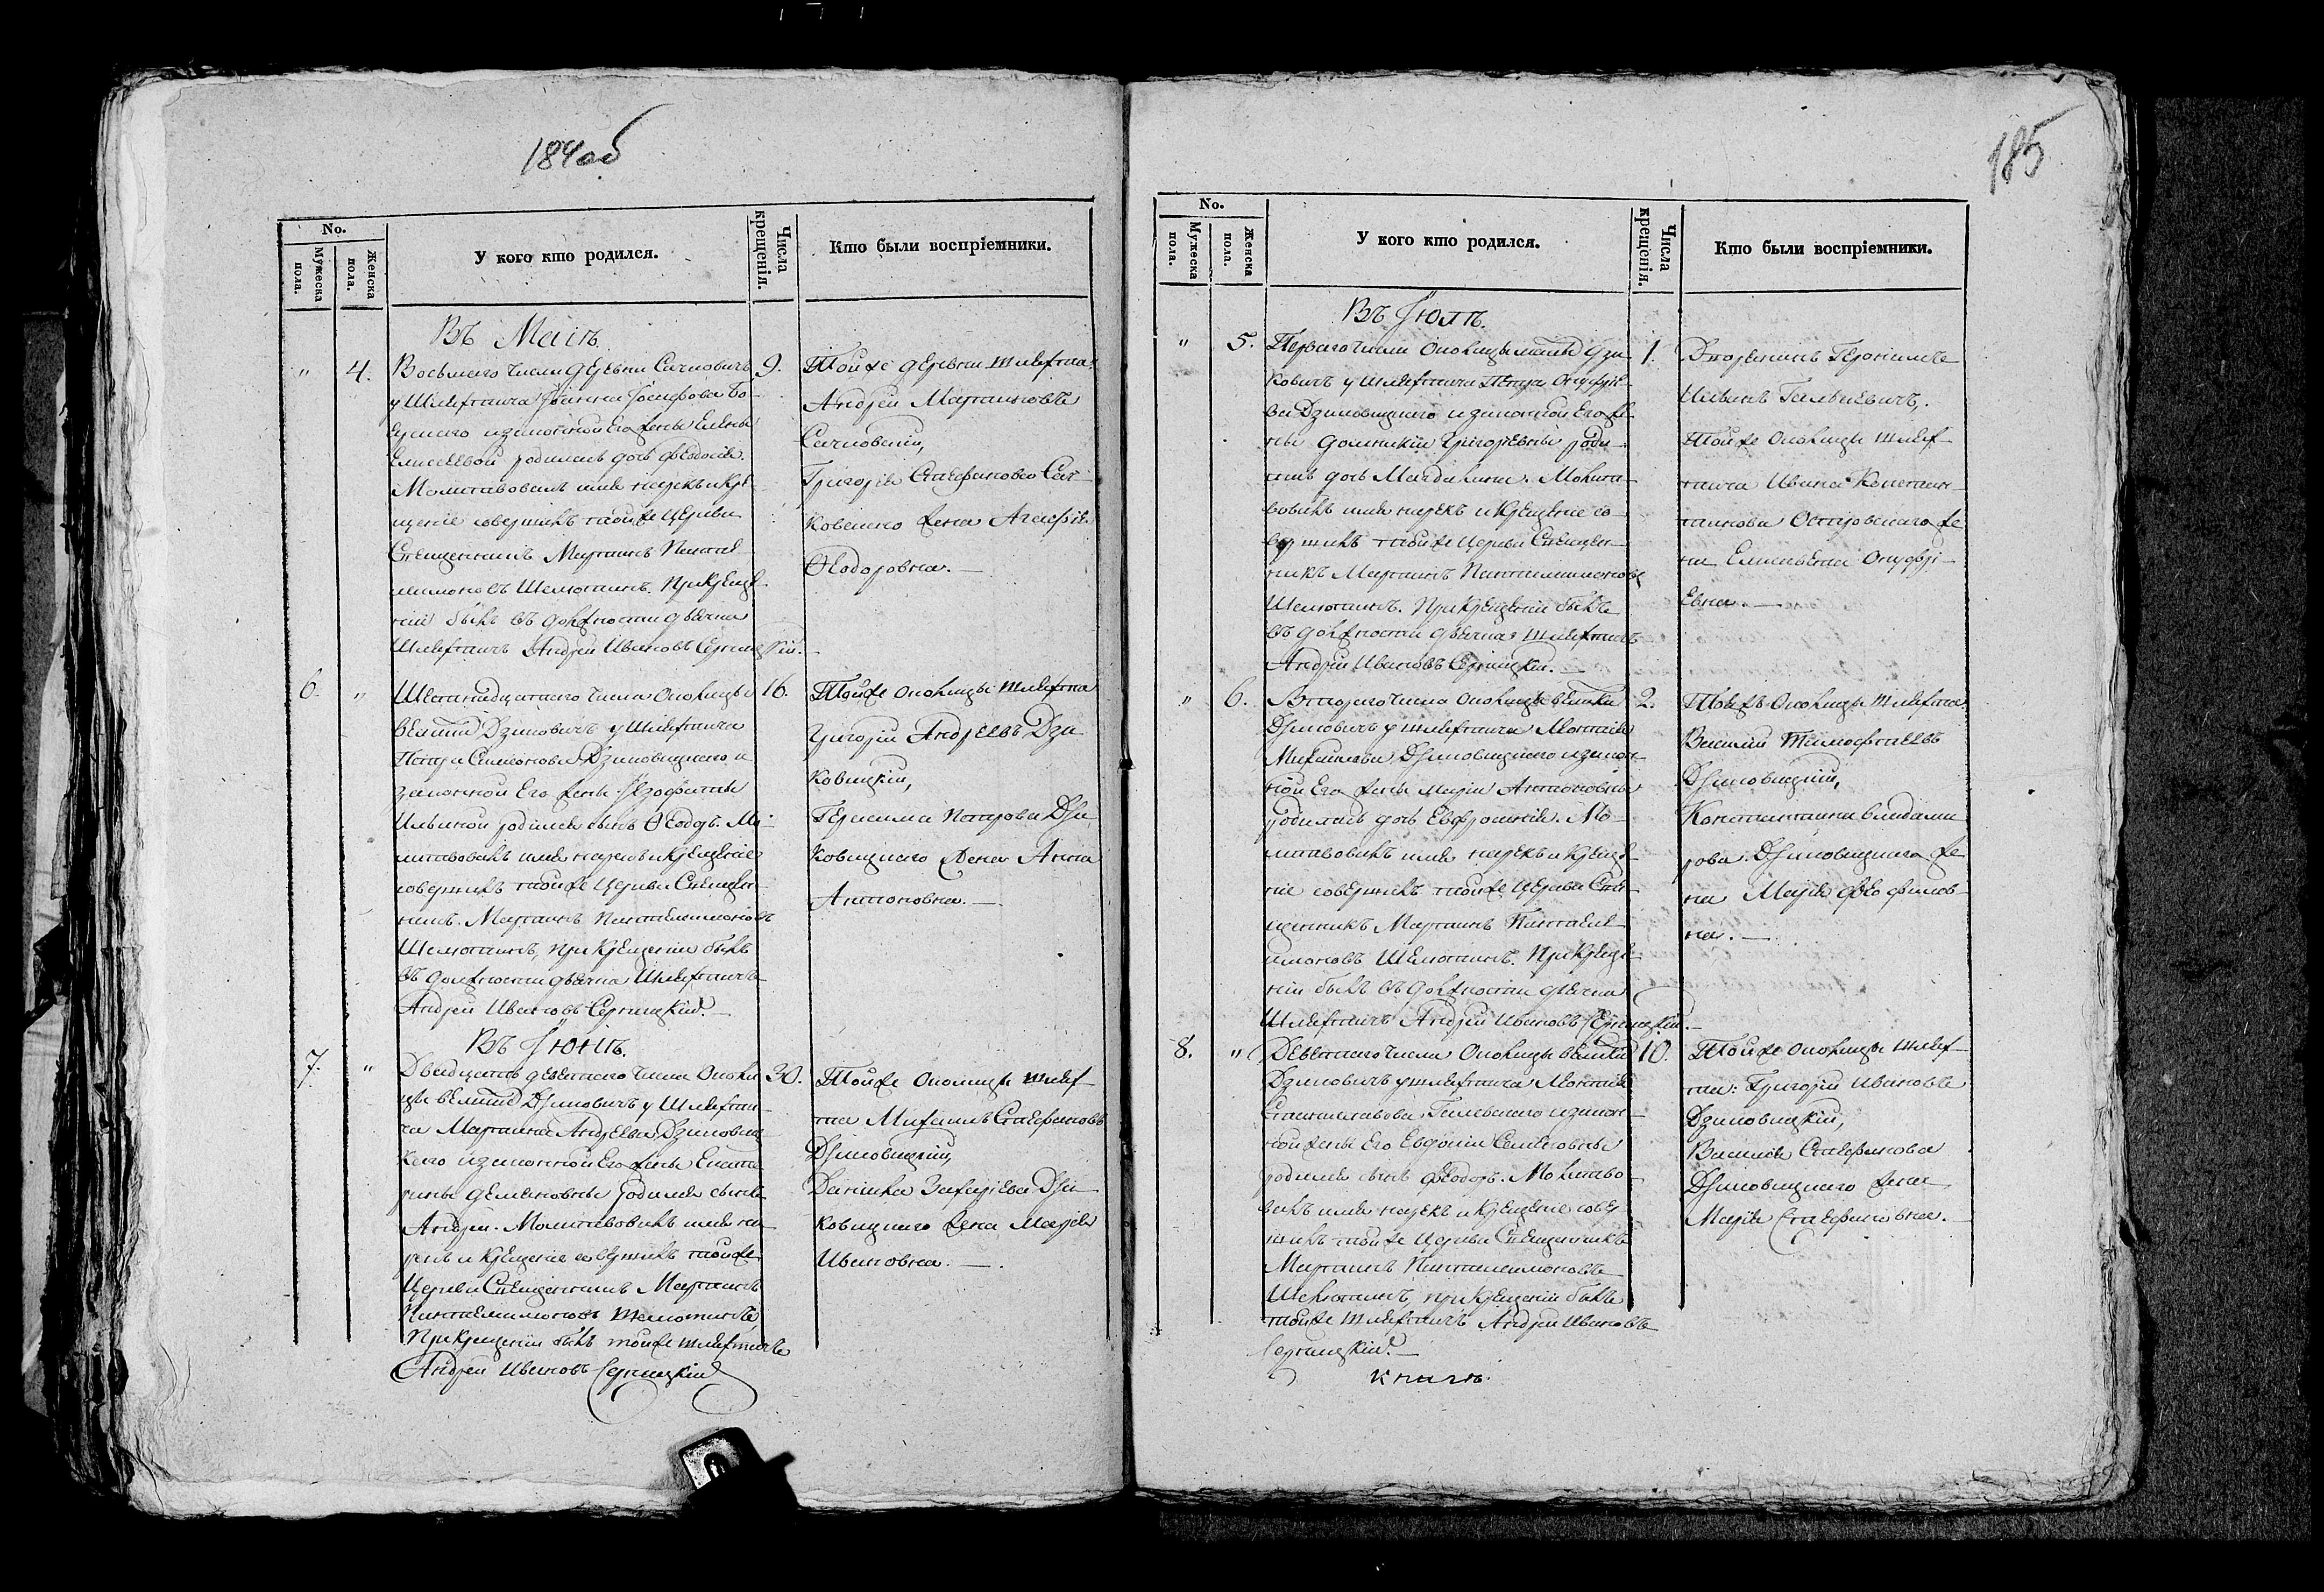 184об
No.
Мужеска пола.
Женска пола.
У кого кто родился.
Числа крещенія.
Кто были воспріемники.
Въ Маіѣ.
„ 4. Восьмаго числа деревни Сачковичъ 9.
у Шляхтича Іоанна Іосифова
и законной его жены Елены
Елисеевой родилась дочь Феодосія.
Молитвовалъ имя нарекъ и кре-
щеніе совершилъ тойже Церкви
Священникъ Мартинъ Пантеле-
имоновъ Шеметилъ. При креще-
ніи былъ въ должности дьячка
Шляхтичъ Андрей Ивановъ Серницкій.
Тойже деревни шляхта:
Андрей Мартиновъ
Сачковскій,
Григорія Стефанова Сач-
ковскаго жена Агафія
Ѳеодоровна. —
6. „ Шестнадцатаго числа Околицы 16.
великій Дзиковичъ у Шляхтича
Петра Симеонова Дзиковицкаго и
законной его жены
Ильиной родился сынъ Ѳеодоръ. Мо-
литвовалъ имя нарекъ и крещеніе
совершилъ тойже Церкви Священ-
никъ Мартинъ Пантелеимоновъ
Шеметилъ, при крещеніи былъ
въ должности дьячка Шляхтичъ
Андрей Ивановъ Серницкій. —
Тойже околицы шляхта
Григорій Андреевъ Дзи
ковицкій,
Герасима Петрова Дзи
ковицкаго жена Анна
Антоновна. —
Въ Іюнѣ.
7. „ Двадцать девятаго числа Околи 30.
цы великій Дзиковичъ у Шляхти-
ча Мартина Андреева Дзиковиц
каго и законной его жены Екате
рины Демяновны родился сынъ
Андрей. Молитвовалъ имя на-
рекъ и крещеніе совершилъ тойже
Церкви Священникъ Мартинъ
Пантелеимоновъ Шеметилъ,
При крещеніи былъ тойже шляхтичъ
Андрей Ивановъ Серницкій
Тойже околицы шлях-
та Михаилъ Стефановъ
Дзиковицкій,
Даніила Захаріева Дзи
ковицкаго жена Марія
Ивановна. —
185
No.
Мужеска пола.
Женска пола.
У кого кто родился.
Числа крещенія.
Кто были воспріемники.
Въ Іюлѣ.
„ 5. Перваго числа Околицы малый Дзи 1.
ковичъ у шляхтича Петра Онуфріе-
ва Дзиковицкаго и законной его же
ны Доминикіи Григорьевны роди
лась дочь Магдалина. Молитв
вовалъ имя нарекъ и крещеніе со-
вершилъ тойже Церкви Священ-
никъ Мартинъ Пантелеимоновъ
Шеметилъ. При крещеніи былъ
въ должности дьячка шляхтичъ
Андрей Ивановъ Серницкій. —
Дворянинъ Геронимъ
Ивановъ
Тойже Околицы шлях-
тича Ивана Констан-
тинова Островскаго же
на Елисавета Онуфрі-
евна. —
„ 6. Втораго числа Околицы великій 2.
Дзиковичъ у шляхтича Матвія
Михайлова Дзиковицкаго и закон
ной его жены Маріи Антоновны
родилась дочь Евфросинія. Мо-
литвовалъ имя нарекъ и креще-
ніе совершилъ тойже церкви Свя-
щенникъ Мартинъ Пантеле-
имоновъ Шеметилъ. При креще-
ніи былъ въ должности дьячка
Шляхтичъ Андрей Ивановъ Серницкій. —
Тойжъ Околицы шляхта:
Василій Тимофеевъ
Дзиковицкій,
Константина
рова Дзиковицкаго же
на Марія Феофилов-
на. —
8. „ Девятаго числа Околицы великій 10.
Дзиковичъ у шляхтича Матвія
Станиславова и закон-
ной жены его Евдокіи Семеновны
родился сынъ Феодоръ. Молитво-
валъ имя нарекъ и крещеніе совер
шилъ тойже Церкви Священникъ
Мартинъ Пантелеимоновъ
Шеметилъ, при крещеніи былъ
тойже шляхтичъ Андрей Ивановъ
Серницкій. —
Тойже околицы шлях-
та: Григорій Ивановъ
Дзиковицкій,
Василія Стефанова
Дзиковицкаго жена
Марія Стефановна. —
книгѣ.